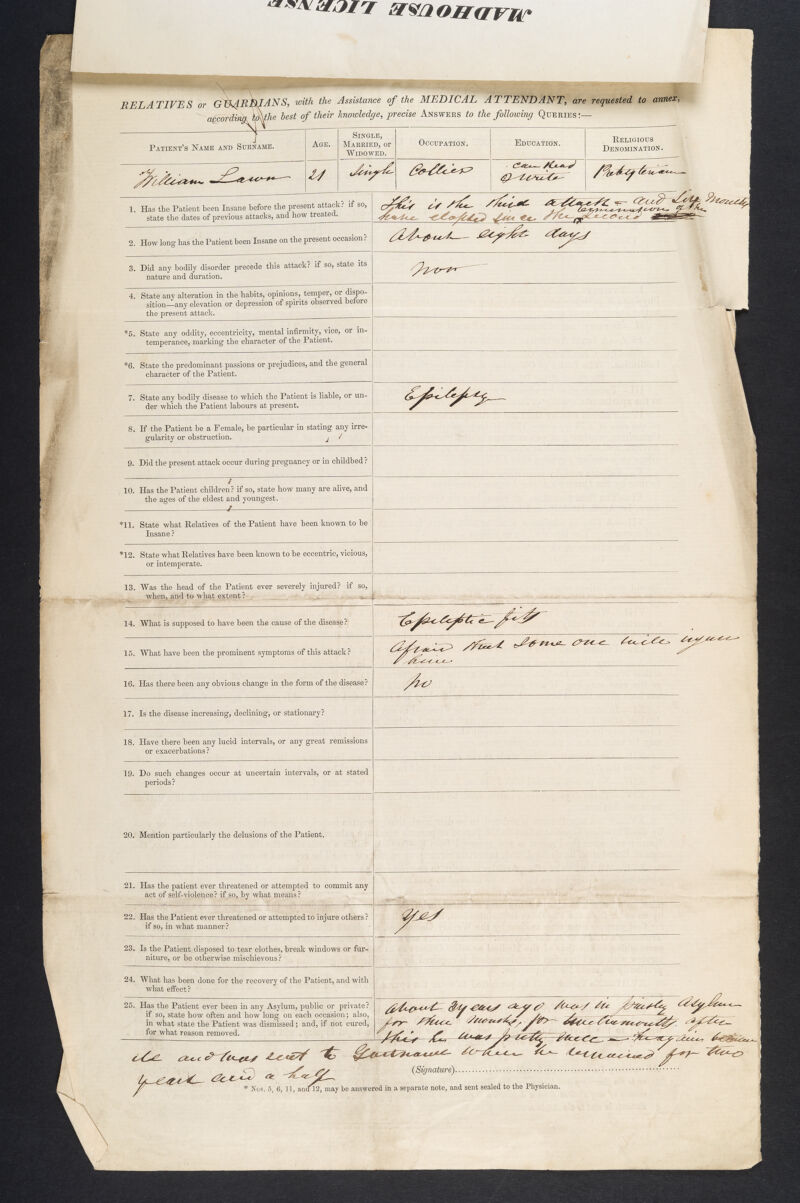 MADHOUSE LICENSE
RELATIVES or GUARDIANS, with the Assistance of the MEDICAL ATTENDANT, are requested to annex,
according to the best of their knowledge, precise ANSWERS to the following QUERIES:—
PATIENT'S NAME AND SURNAME. AGE. SINGLE, MARRIED, OR WIDOWED. OCCUPATION. EDUCATION. RELIGIOUS DENOMINATION.
William Lawn 21 Single Collier can Read & Write Presbyterian
1. Has the Patient been Insane before the present attack? if so,
state the dates of previous attacks, and how treated.
This is the third attack - and Six Months
have elapsed since the termination of the second
2. How long has the Patient been Insane on the present occasion?
About eight days
3. Did any bodily disorder precede this attack? if so, state its
nature and duration.
4. State any alteration in the habits, opinions, temper, or dispo-
sition—any elevation or depression of spirits observed before
the present attack.
*5. State any oddity, eccentricity, mental infirmity, vice, or in-
temperance, marking the character of the Patient.
*6. State the predominant passions or prejudices, and the general
character of the Patient.
7. State any bodily disease to which the Patient is liable, or un-
der which the Patient labours at present.
Epilepsy
8. If the Patient be a Female, be particular in stating any irre-
gularity or obstruction.
9. Did the present attack occur during pregnancy or in childbed?
10. Has the Patient children? if so, state how many are alive, and
the ages of the eldest and youngest.
*11. State what Relatives of the Patient have been known to be
Insane?
*12. State what Relatives have been known to be eccentric, vicious,
or intemperate.
13. Was the head of the Patient ever severely injured? if so,
when, and to what extent?
14. What is supposed to have been the cause of the disease?
Epileptic fits
15. What have been the prominent symptoms of this attack?
Afraid that Some one will injure
him
16. Has there been any obvious change in the form of the disease?
No
17. Is the disease increasing, declining, or stationary?
18. Have there been any lucid intervals, or any great remissions
or exacerbations?
19. Do such changes occur at uncertain intervals, or at stated
periods?
20. Mention particularly the delusions of the Patient.
21. Has the patient ever threatened or attempted to commit any
act of self-violence? if so, by what means?
22. Has the Patient ever threatened or attempted to injure others?
if so, in what manner?
Yes
23. Is the Patient disposed to tear clothes, break windows or fur-
niture, or be otherwise mischievous?
24. What has been done for the recovery of the Patient, and with
what effect?
25. Has the Patient ever been in any Asylum, public or private?
if so, state how often and how long on each occasion; also,
in what state the Patient was dismissed; and, if not cured,
for what reason removed.
about 3 years ago was in Paisley Asylum
for three months, for twelve months after
this he was pretty well - he again became
ill and was sent to Gartnavel where he remained for two
years and a half
(Signature)
* Nos. 5, 6, 11, and 12, may be answered in a separate note, and sent sealed to the Physician.